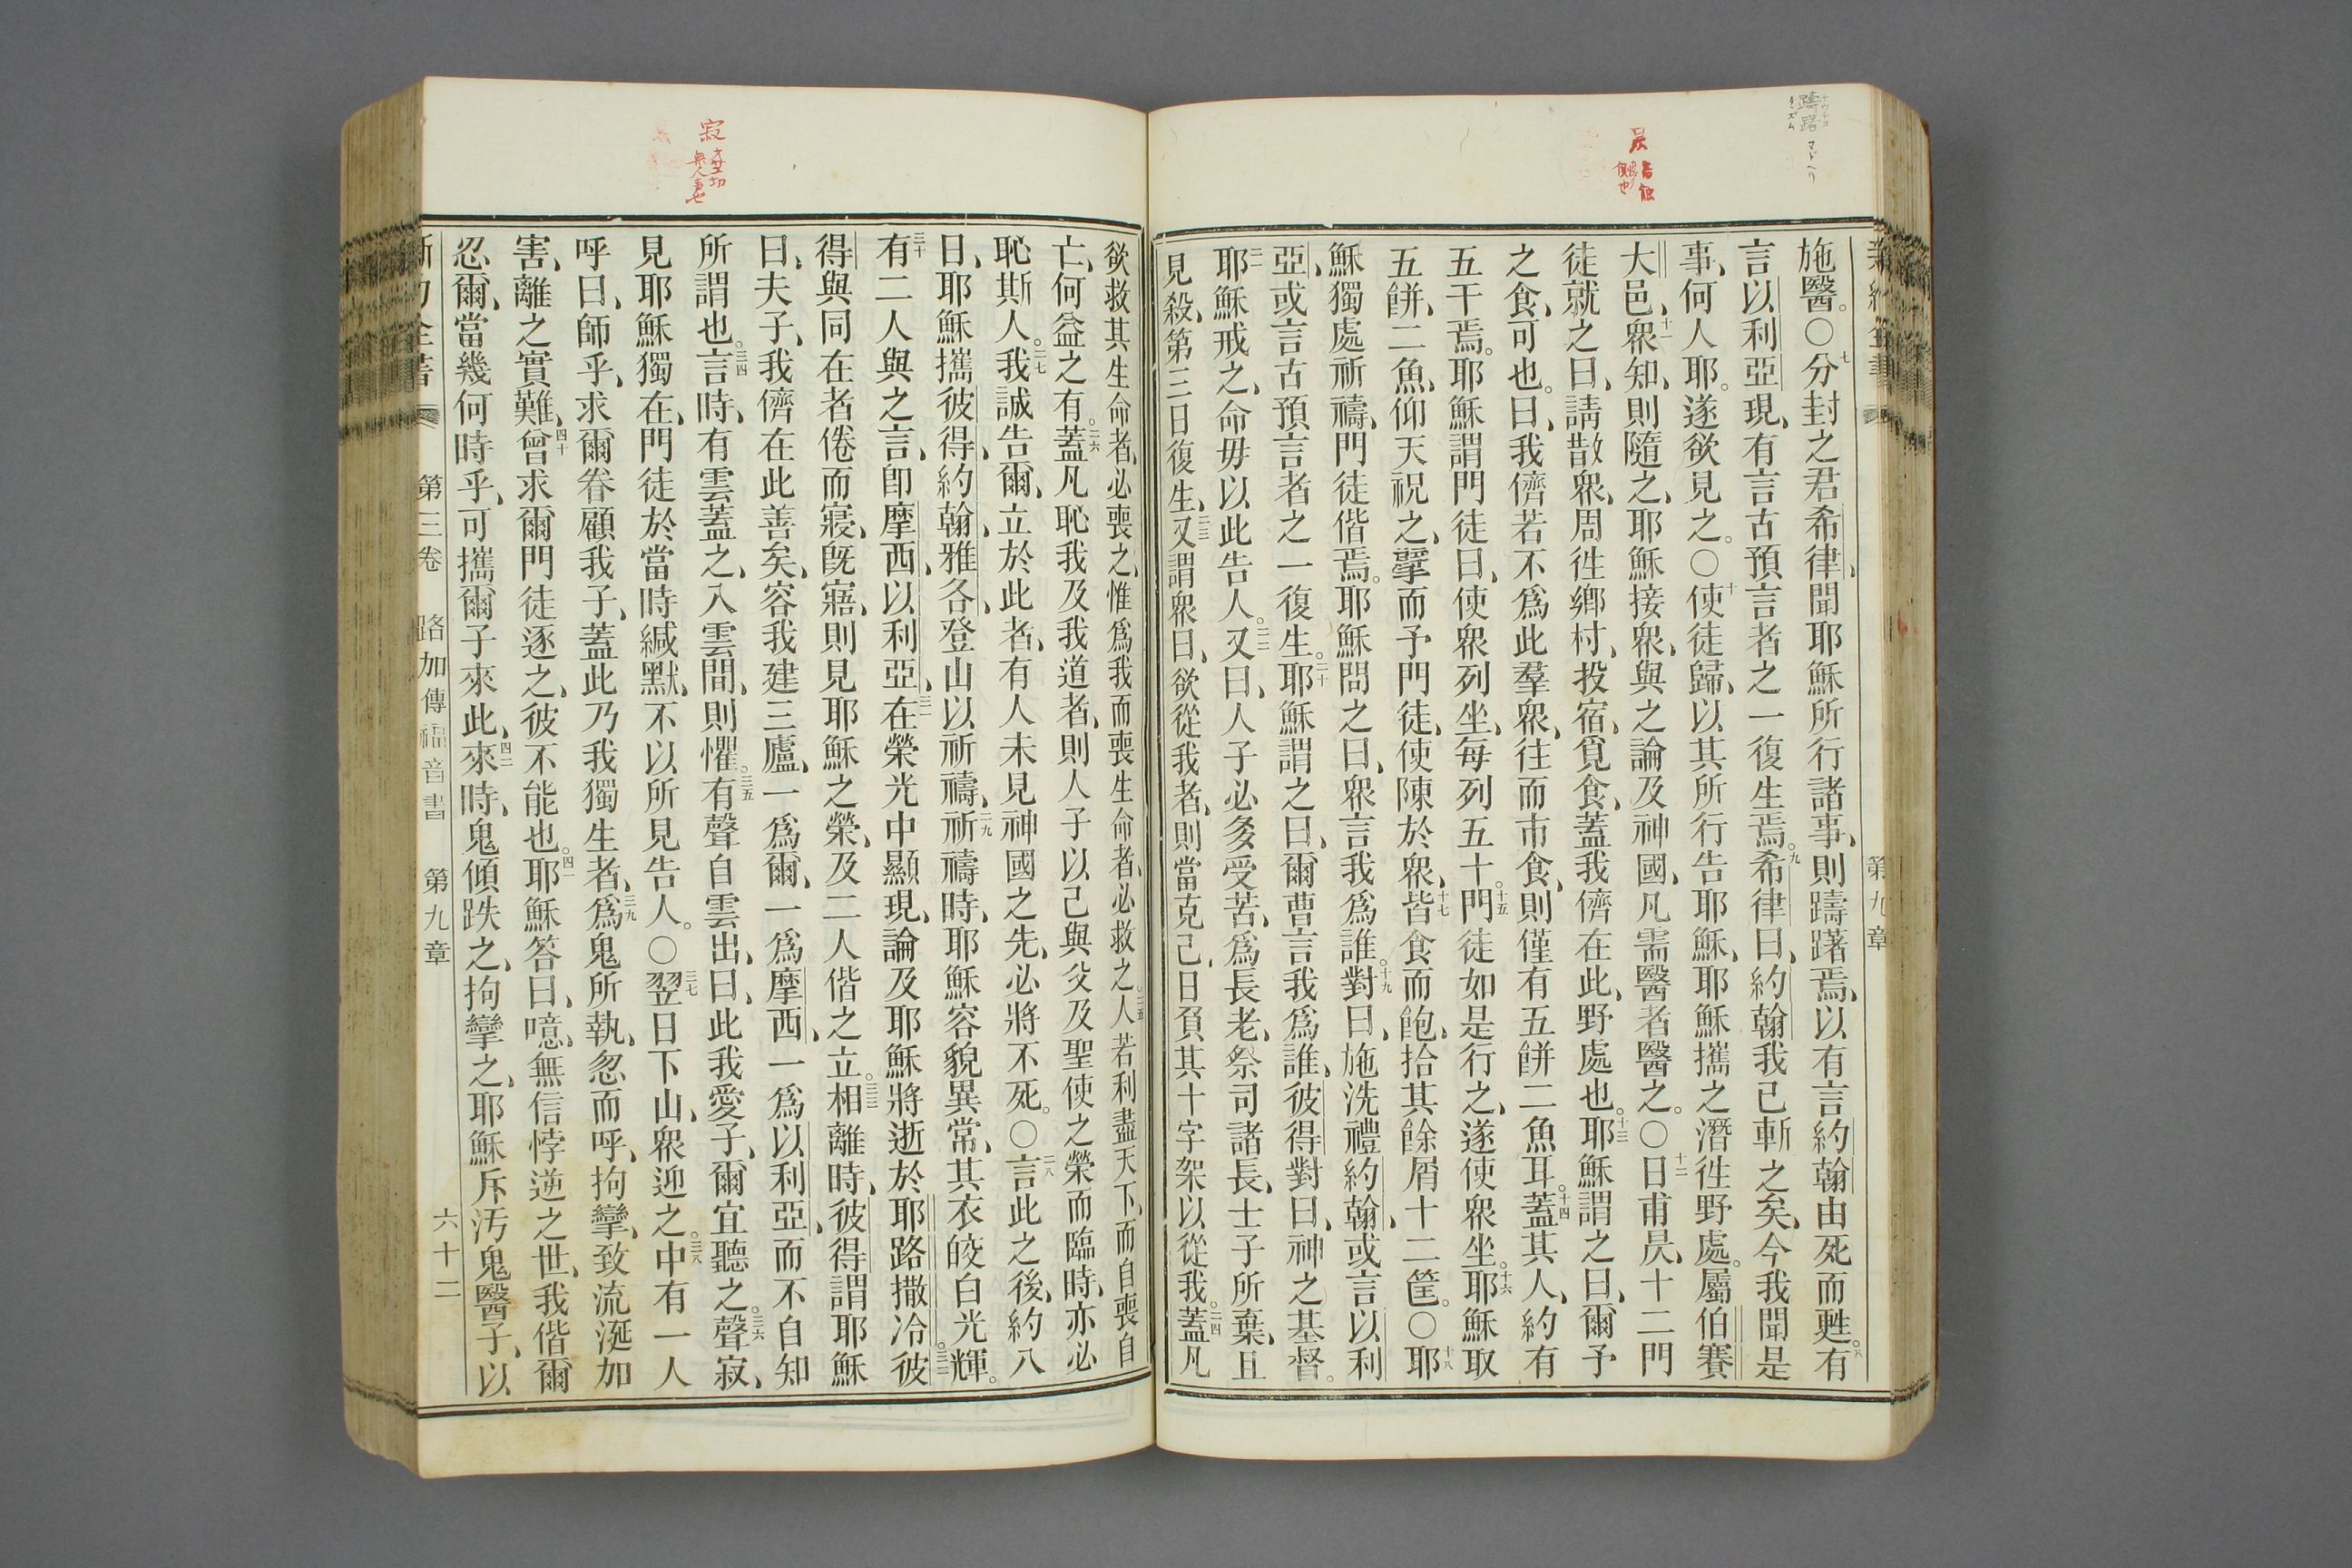 躊躇 マドヘリ
昃
寂
施醫。○七分封之君希律、聞耶穌所行諸事、則躊躇焉、以有言約翰由死而甦。八有
言以利亞現、有言古預言者之一復生焉。九希律曰、約翰我已斬之矣、今我聞是
事、何人耶。遂欲見之。○十使徒歸、以其所行告耶穌、耶穌攜之潛徃野處。屬伯賽
大邑、十一衆知、則隨之、耶穌接衆、與之論及神國、凡需醫者醫之。○十二日甫昃、十二門
徒就之曰、請散衆、周徃鄉村、投宿覓食、蓋我儕在此、野處也。十三耶穌謂之曰、爾予
之食、可也。曰、我儕若不爲此羣衆、往而市食、則僅有五餅二魚耳。十四蓋其人、約有
五千焉。耶穌謂門徒曰、使衆列坐、每列五十。十五門徒如是行之、遂使衆坐。十六耶穌取
五餅、二魚、仰天祝之、擘而予門徒、使陳於衆、十七皆食而飽、拾其餘屑十二筐。○十八耶
穌獨處祈禱、門徒偕焉。耶穌問之曰、衆言我爲誰。十九對曰、施洗禮約翰、或言以利
亞、或言古預言者之一復生。二十耶穌謂之曰、爾曹言我爲誰、彼得對曰、神之基督。
二一耶穌戒之、命毋以此告人。二二又曰、人子必多受苦、爲長老、祭司諸長、士子所棄、且
見殺、第三日復生、二三又謂衆曰、欲從我者、則當克己、日負其十字架以從我。二四蓋凡
欲救其生命者、必喪之、惟爲我而喪生命者、必救之。二五人若利盡天下、而自喪自
亡、何益之有。二六蓋凡恥我及我道者、則人子以己與父及聖使之榮而臨時、亦必
恥斯人。二七我誠告爾、立於此者、有人未見神國之先、必將不死。○二八言此之後、約八
日、耶穌攜彼得、約翰、雅各、登山以祈禱、二九祈禱時、耶穌容貌異常、其衣皎白光輝。
三十有二人與之言、卽摩西、以利亞、三一在榮光中顯現、論及耶穌將逝於耶路撒冷。三二彼
得與同在者倦而寢、旣寤、則見耶穌之榮、及二人偕之立。三三相離時、彼得謂耶穌
曰、夫子、我儕在此善矣、容我建三廬、一爲爾、一爲摩西、一爲以利亞、而不自知
所謂也。三四言時、有雲蓋之、入雲間、則懼。三五有聲自雲出、曰、此我愛子、爾宜聽之。三六聲寂、
見耶穌獨在、門徒於當時緘默、不以所見告人。○三七翌日下山、衆迎之。三八中有一人
呼曰、師乎、求爾眷顧我子、蓋此乃我獨生者、三九爲鬼所執、忽而呼、拘攣、致流涎加
害、離之實難、四十曾求爾門徒逐之、彼不能也。四一耶穌答曰、噫、無信悖逆之世、我偕爾
忍爾、當幾何時乎、可攜爾子來此、四二來時、鬼傾跌之、拘攣之、耶穌斥汚鬼醫子、以
第三卷 路加傳福音書 第九章 六十二
第九章